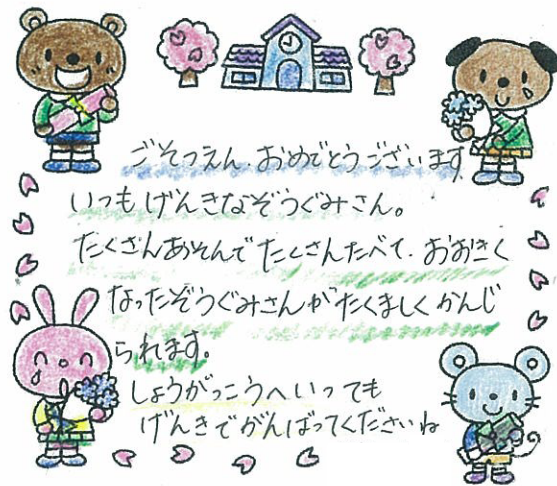 ごそつえん、おめでとうございます
いつもげんきなぞうぐみさん。
たくさんあそんでたくさんたべて、おおきく
なったぞうぐみさんがたくましくかんじ
られます。
しょうがっこうへいっても
げんきでがんばってくださいね